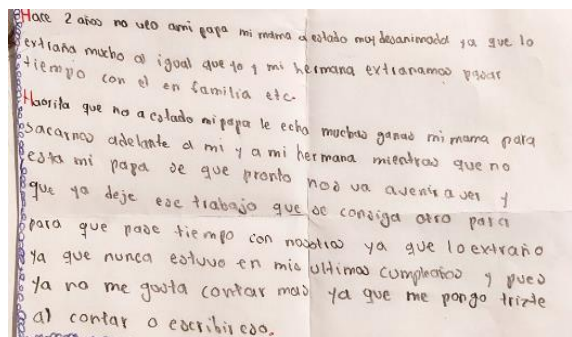 Hace 2 años no veo ami papa mi mama a estado muy desanimada ya que lo
extraña mucho al igual que yo y mi hermana extranamos pasar
tiempo con el en familia etc.
Haorita que no a estado mi papa le echo muchas ganas mi mama para
sacarnos adelante al mi y a mi hermana mientras que no
esta mi papa se que pronto nos va avenir a ver y
que ya deje ese trabajo que se consiga otro para
para que pase tiempo con nosotras ya que lo extraño
ya que nunca estuvo en mis ultimos cumpleaños y pues
ya no me gusta contar mas ya que me pongo trizte
al contar o escribir eso.